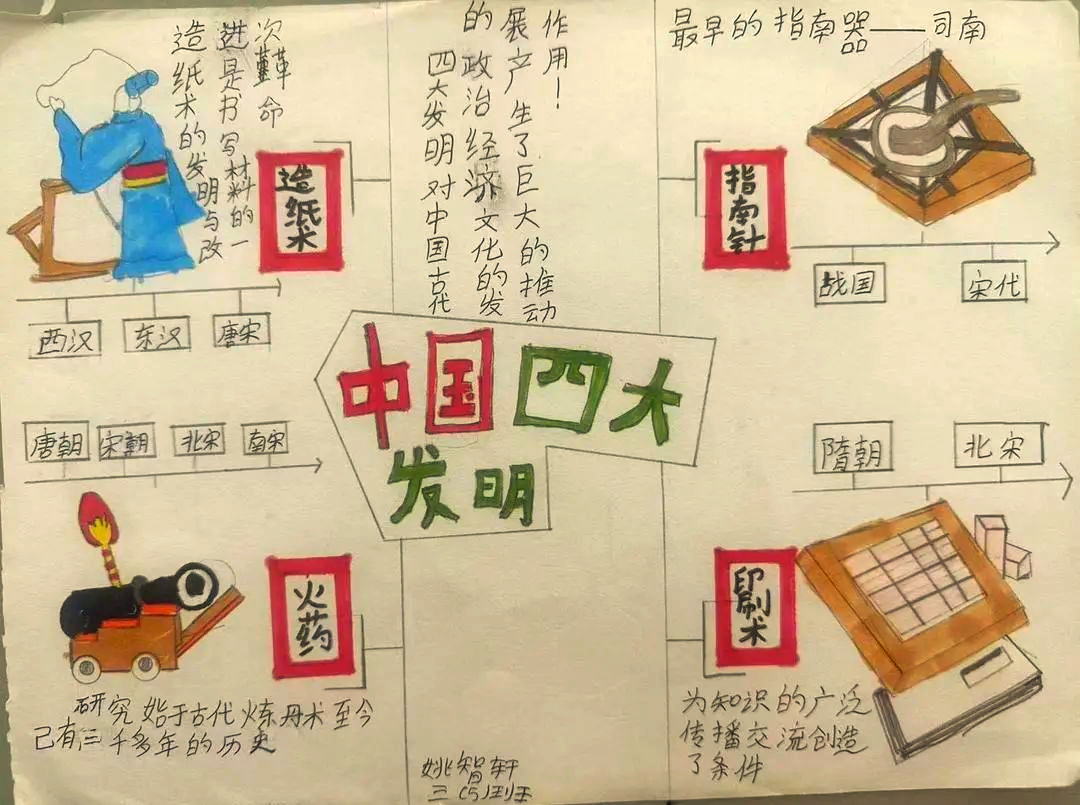 造纸术的发明与改
进是书写材料的一
次革命
造纸术
西汉
东汉
唐宋
四大发明对中国古代
的政治经济文化的发
展产生了巨大的推动
作用！
最早的指南器——司南
指南针
战国
宋代
中国四大
发明
唐朝
宋朝
北宋
南宋
火药
研究始于古代炼丹术至今
已有三千多年的历史
隋朝
北宋
印刷术
为知识的广泛
传播交流创造
了条件
姚智轩
三(5)班